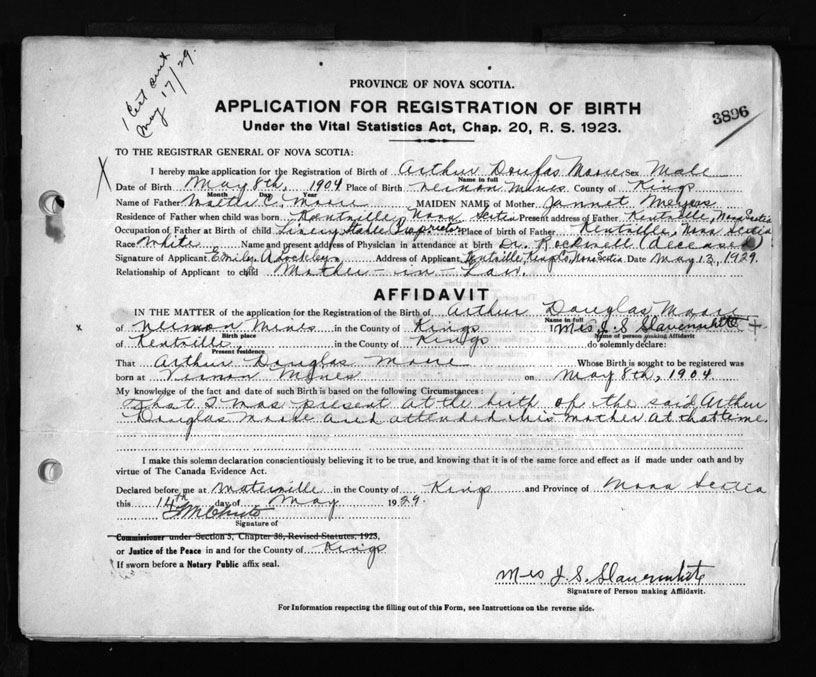 1 Cert sent
May 17/29.
PROVINCE OF NOVA SCOTIA.
APPLICATION FOR REGISTRATION OF BIRTH
3896
Under the Vital Statistics Act, Chap. 20, R. S. 1923.
TO THE REGISTRAR GENERAL OF NOVA SCOTIA:
X
I hereby make application for the Registration of Birth of Arthur Douglas Moore Sex Male
Name in full
Date of Birth May 8th, 1904 Place of Birth Mines County of Kings
Month Day Year
Name of Father Walter C. Moore MAIDEN NAME of Mother Jannet
Residence of Father when child was born Kentville, Nova Scotia Present address of Father Kentville, Nova Scotia
Occupation of Father at Birth of child Livery Stable Proprietor Place of birth of Father Kentville, Nova Scotia
Race White Name and present address of Physician in attendance at birth Dr. Rockwell (deceased)
Signature of Applicant Emily A. Address of Applicant Kentville, Kings Co, Nova Scotia Date May 13, 1929.
Relationship of Applicant to child Mother-in-Law.
AFFIDAVIT
IN THE MATTER of the application for the Registration of the Birth of Arthur Douglas Moore
Name in full
x
of Mines in the County of Kings I Mrs J. S.
Birth place
Name of person making Affidavit
of Kentville, in the County of Kings do solemnly declare:
Present residence
That Arthur Douglas Moore Whose Birth is sought to be registered was
born at Mines on May 8th, 1904
My knowledge of the fact and date of such Birth is based on the following Circumstances:
That I was present at the birth of the said Arthur
Douglas Moore and attended his mother at that time.
I make this solemn declaration conscientiously believing it to be true, and knowing that it is of the same force and effect as if made under oath and by
virtue of The Canada Evidence Act.
Declared before me at Waterville in the County of Kings and Province of Nova Scotia
this 14th day of May 1929.
Signature of
Commissioner under Section 3, Chapter 38, Revised Statutes, 1923,
or Justice of the Peace in and for the County of Kings
If sworn before a Notary Public affix seal.
Mrs J. S.
Signature of Person making Affidavit.
For Information respecting the filling out of this Form, see Instructions on the reverse side.